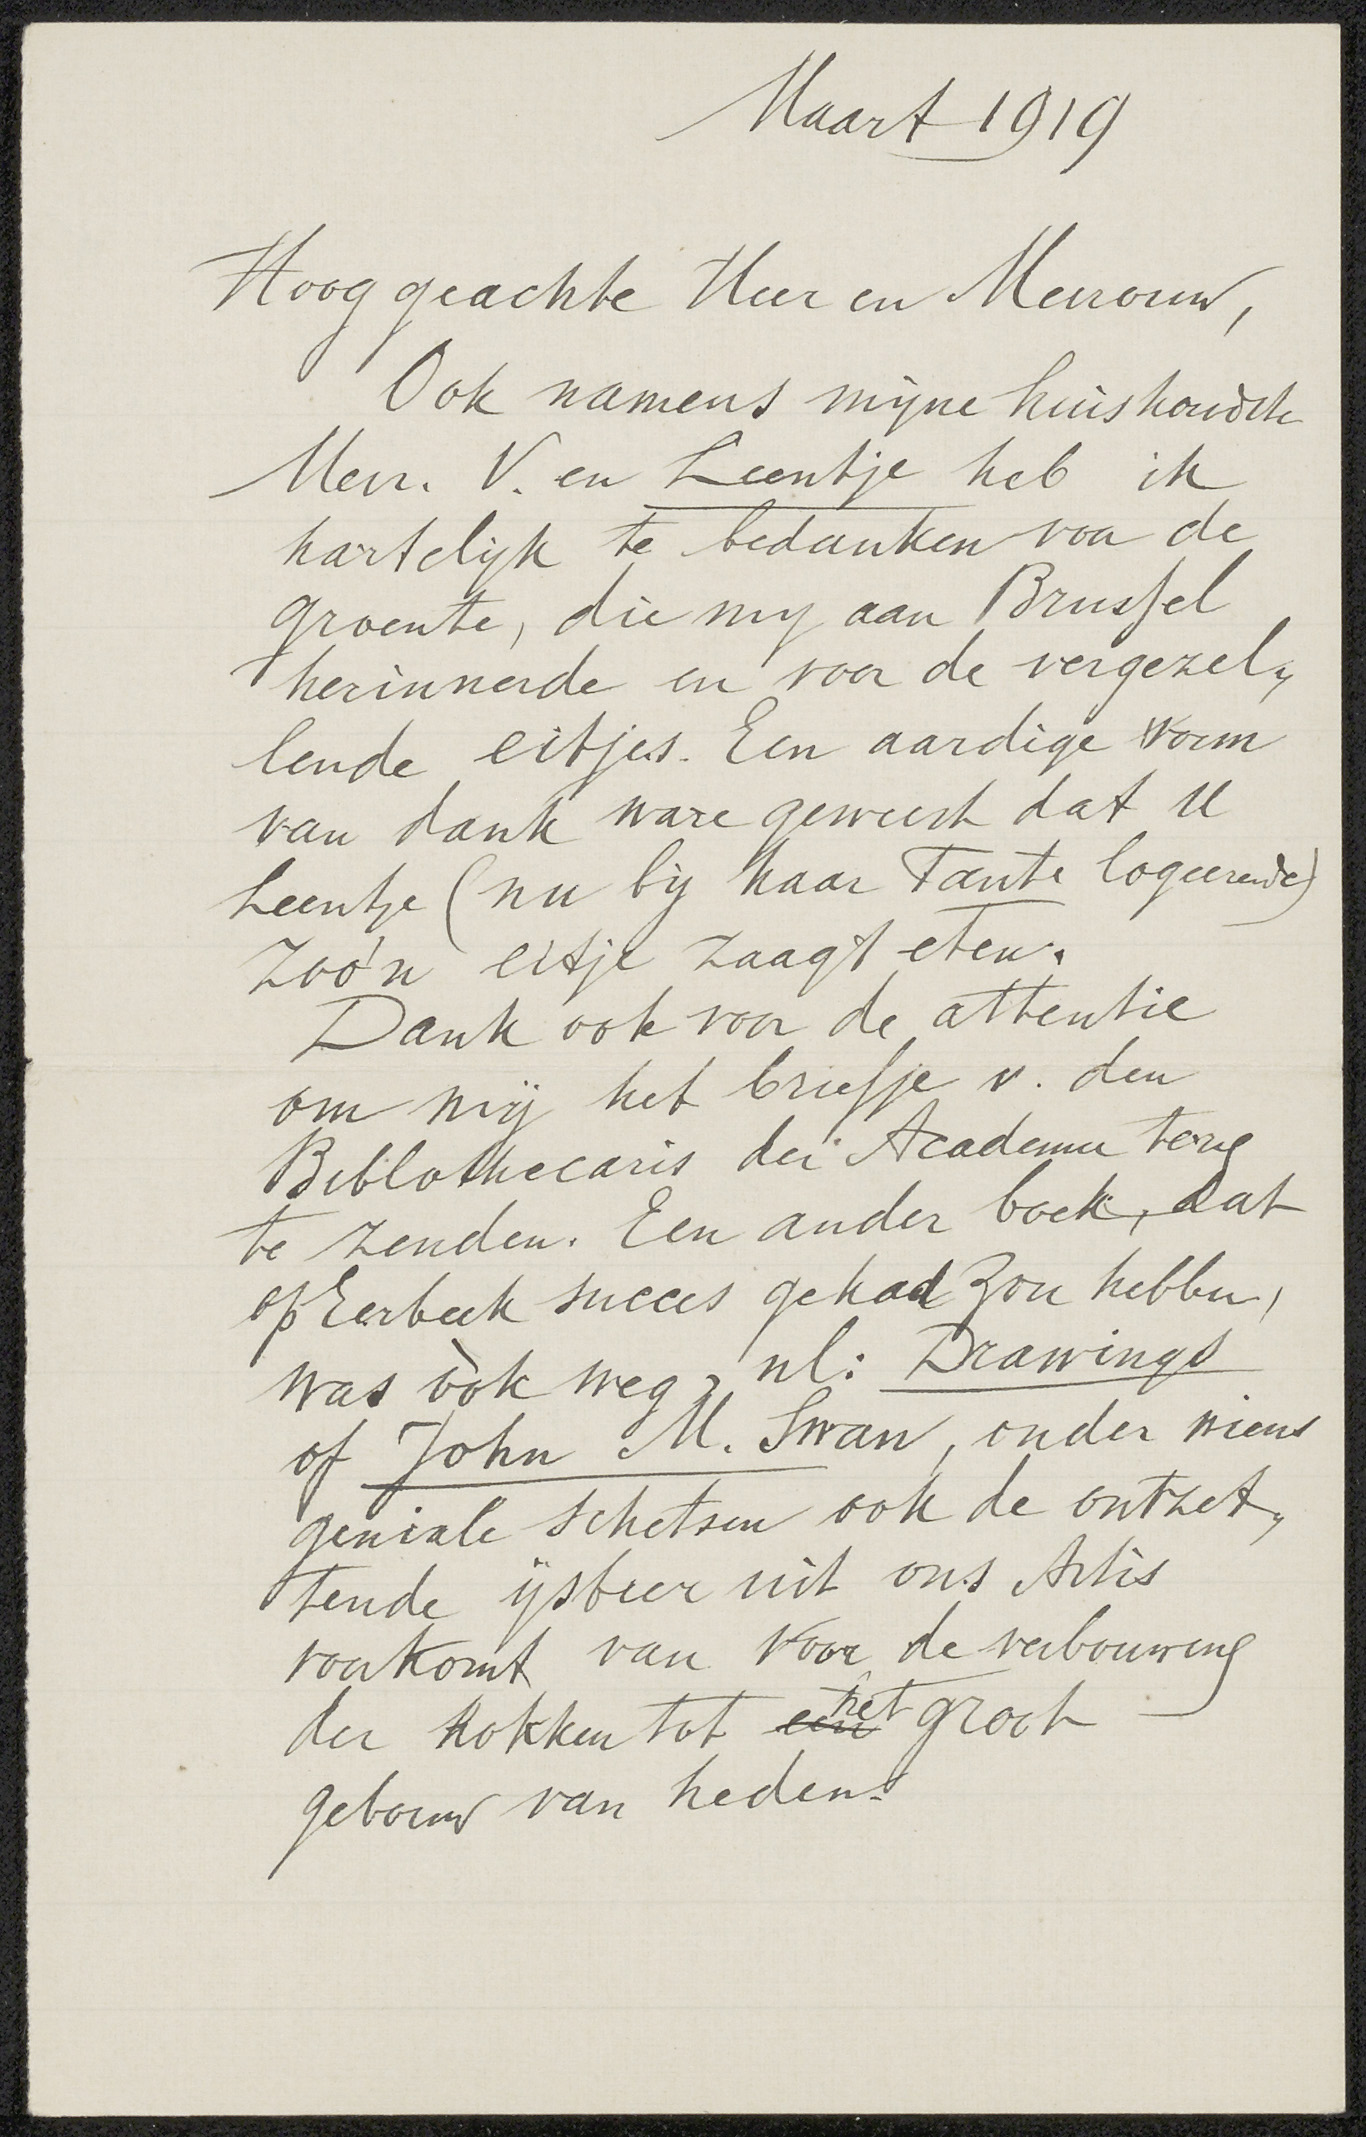 Maart 1919
Hooggeachte Heer en Mevrouw,
Ook namens mijne huishoudster
Mevr. V. en Leentje heb ik
hartelijk te bedanken voor de
groente, die my aan Brussel
herinnerde en voor de vergezel„
lende eitjes. Een aardige vorm
van dank ware geweest dat U
Leentje (nu bij haar Tante logeerende)
zoo'n eitje zaagt eten.
Dank ook voor de attentie
om mij het briefje v. den
Biblothecaris der Academie terug
te zenden. Een ander boek, dat
op Eerbeek succes gehad zou hebben,
was òòk weg, nl: Drawings
of John M. Swan, onder wiens
geniale schetsen ook de ontzet„
tende ijsbeer uit ons Artis
voorkomt van voor de verbouwing
der hokken tot een het groot
gebouw van heden.